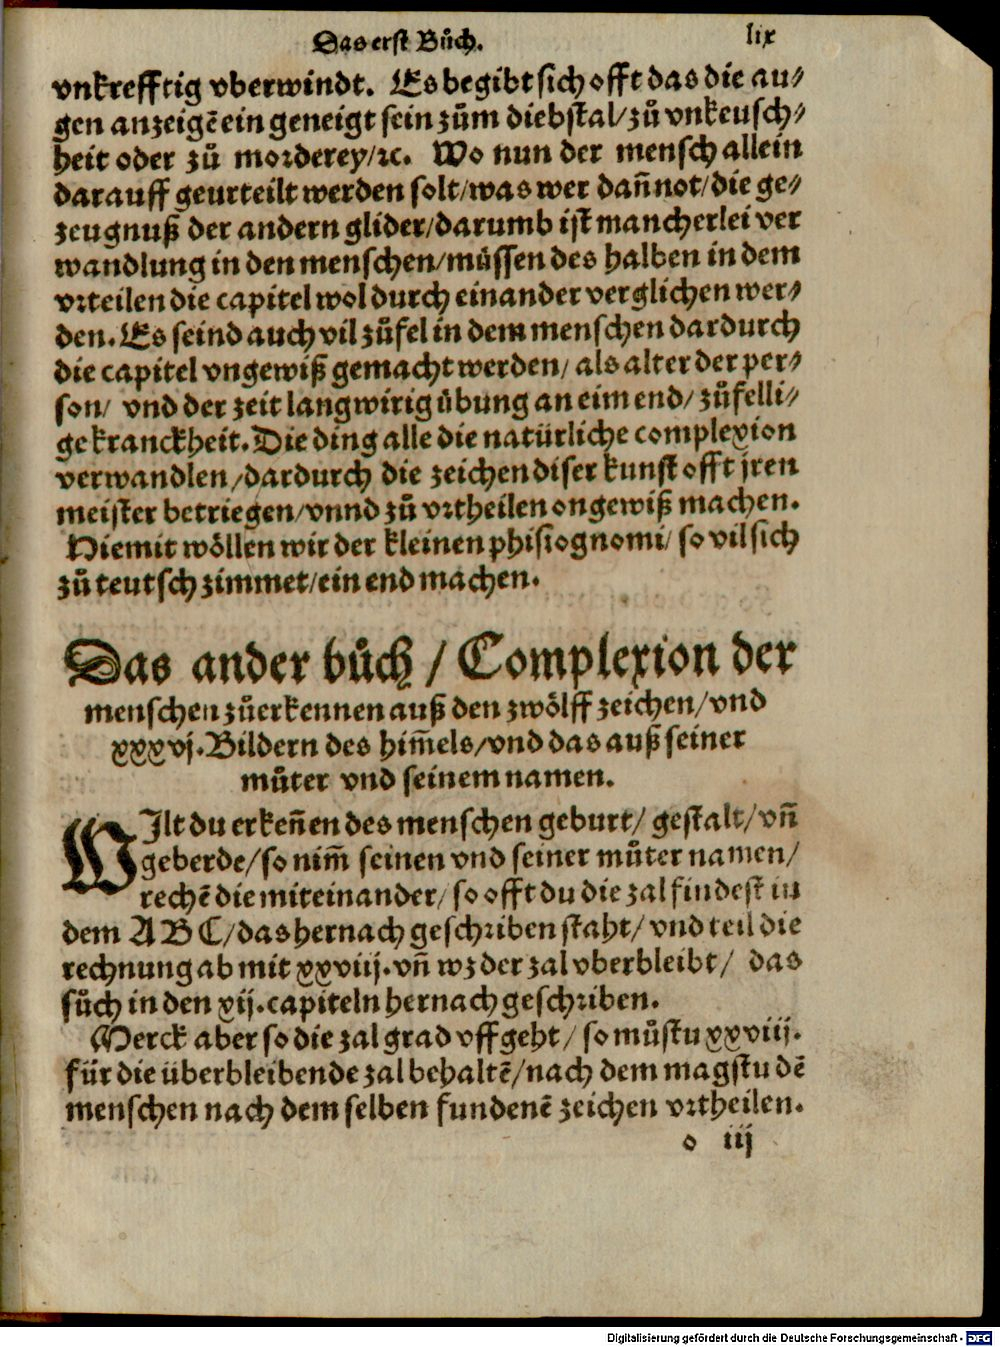 Das erst Bůch. lix
vnkrefftig vberwindt. Es begibt sich offt das die au⸗
gen anzeigē ein geneigt sein zům diebstal/zů vnkeusch⸗
heit oder zů morderey/ꝛc. Wo nun der mensch allein
darauff geurteilt werden solt/was wer dañ not/die ge⸗
zeugnuß der andern glider/darumb ist mancherlei ver
wandlung in den menschen/müssen des halben in dem
vrteilen die capitel wol durch einander verglichen wer⸗
den. Es seind auch vil zůfel in dem menschen dardurch
die capitel vngewiß gemacht werden/als alter der per⸗
son/ vnd der zeit langwirig übung an eim end/ zůfelli⸗
ge kranckheit. Die ding alle die natürliche complexion
verwandlen/dardurch die zeichen diser kunst offt jren
meister betriegen/vnnd zů vrtheilen ongewiß machen.
Hiemit wöllen wir der kleinen phisiognomi/ so vil sich
zů teutsch zimmet/ein end machen.
Das ander bůch / Complexion der
menschen zůerkennen auß den zwölff zeichen/vnd
xxxvj. Bildern des him̄els/vnd das auß seiner
můter vnd seinem namen.
WIlt du erkeñen des menschen geburt/ gestalt/ vñ
geberde/so nim̄ seinen vnd seiner můter namen/
rechē die miteinander/ so offt du die zal findest in
dem A B C/das hernach geschriben staht/ vnd teil die
rechnung ab mit xxviij. vñ wz der zal vberbleibt/ das
sůch in den xij. capiteln hernach geschriben.
Merck aber so die zal grad vff geht/ so můstu xxviij.
für die überbleibende zal behaltē/nach dem magstu dē
menschen nach dem selben fundenē zeichen vrtheilen.
o iij
Digitalisierung gefördert durch die Deutsche Forschungsgemeinschaft - DFG